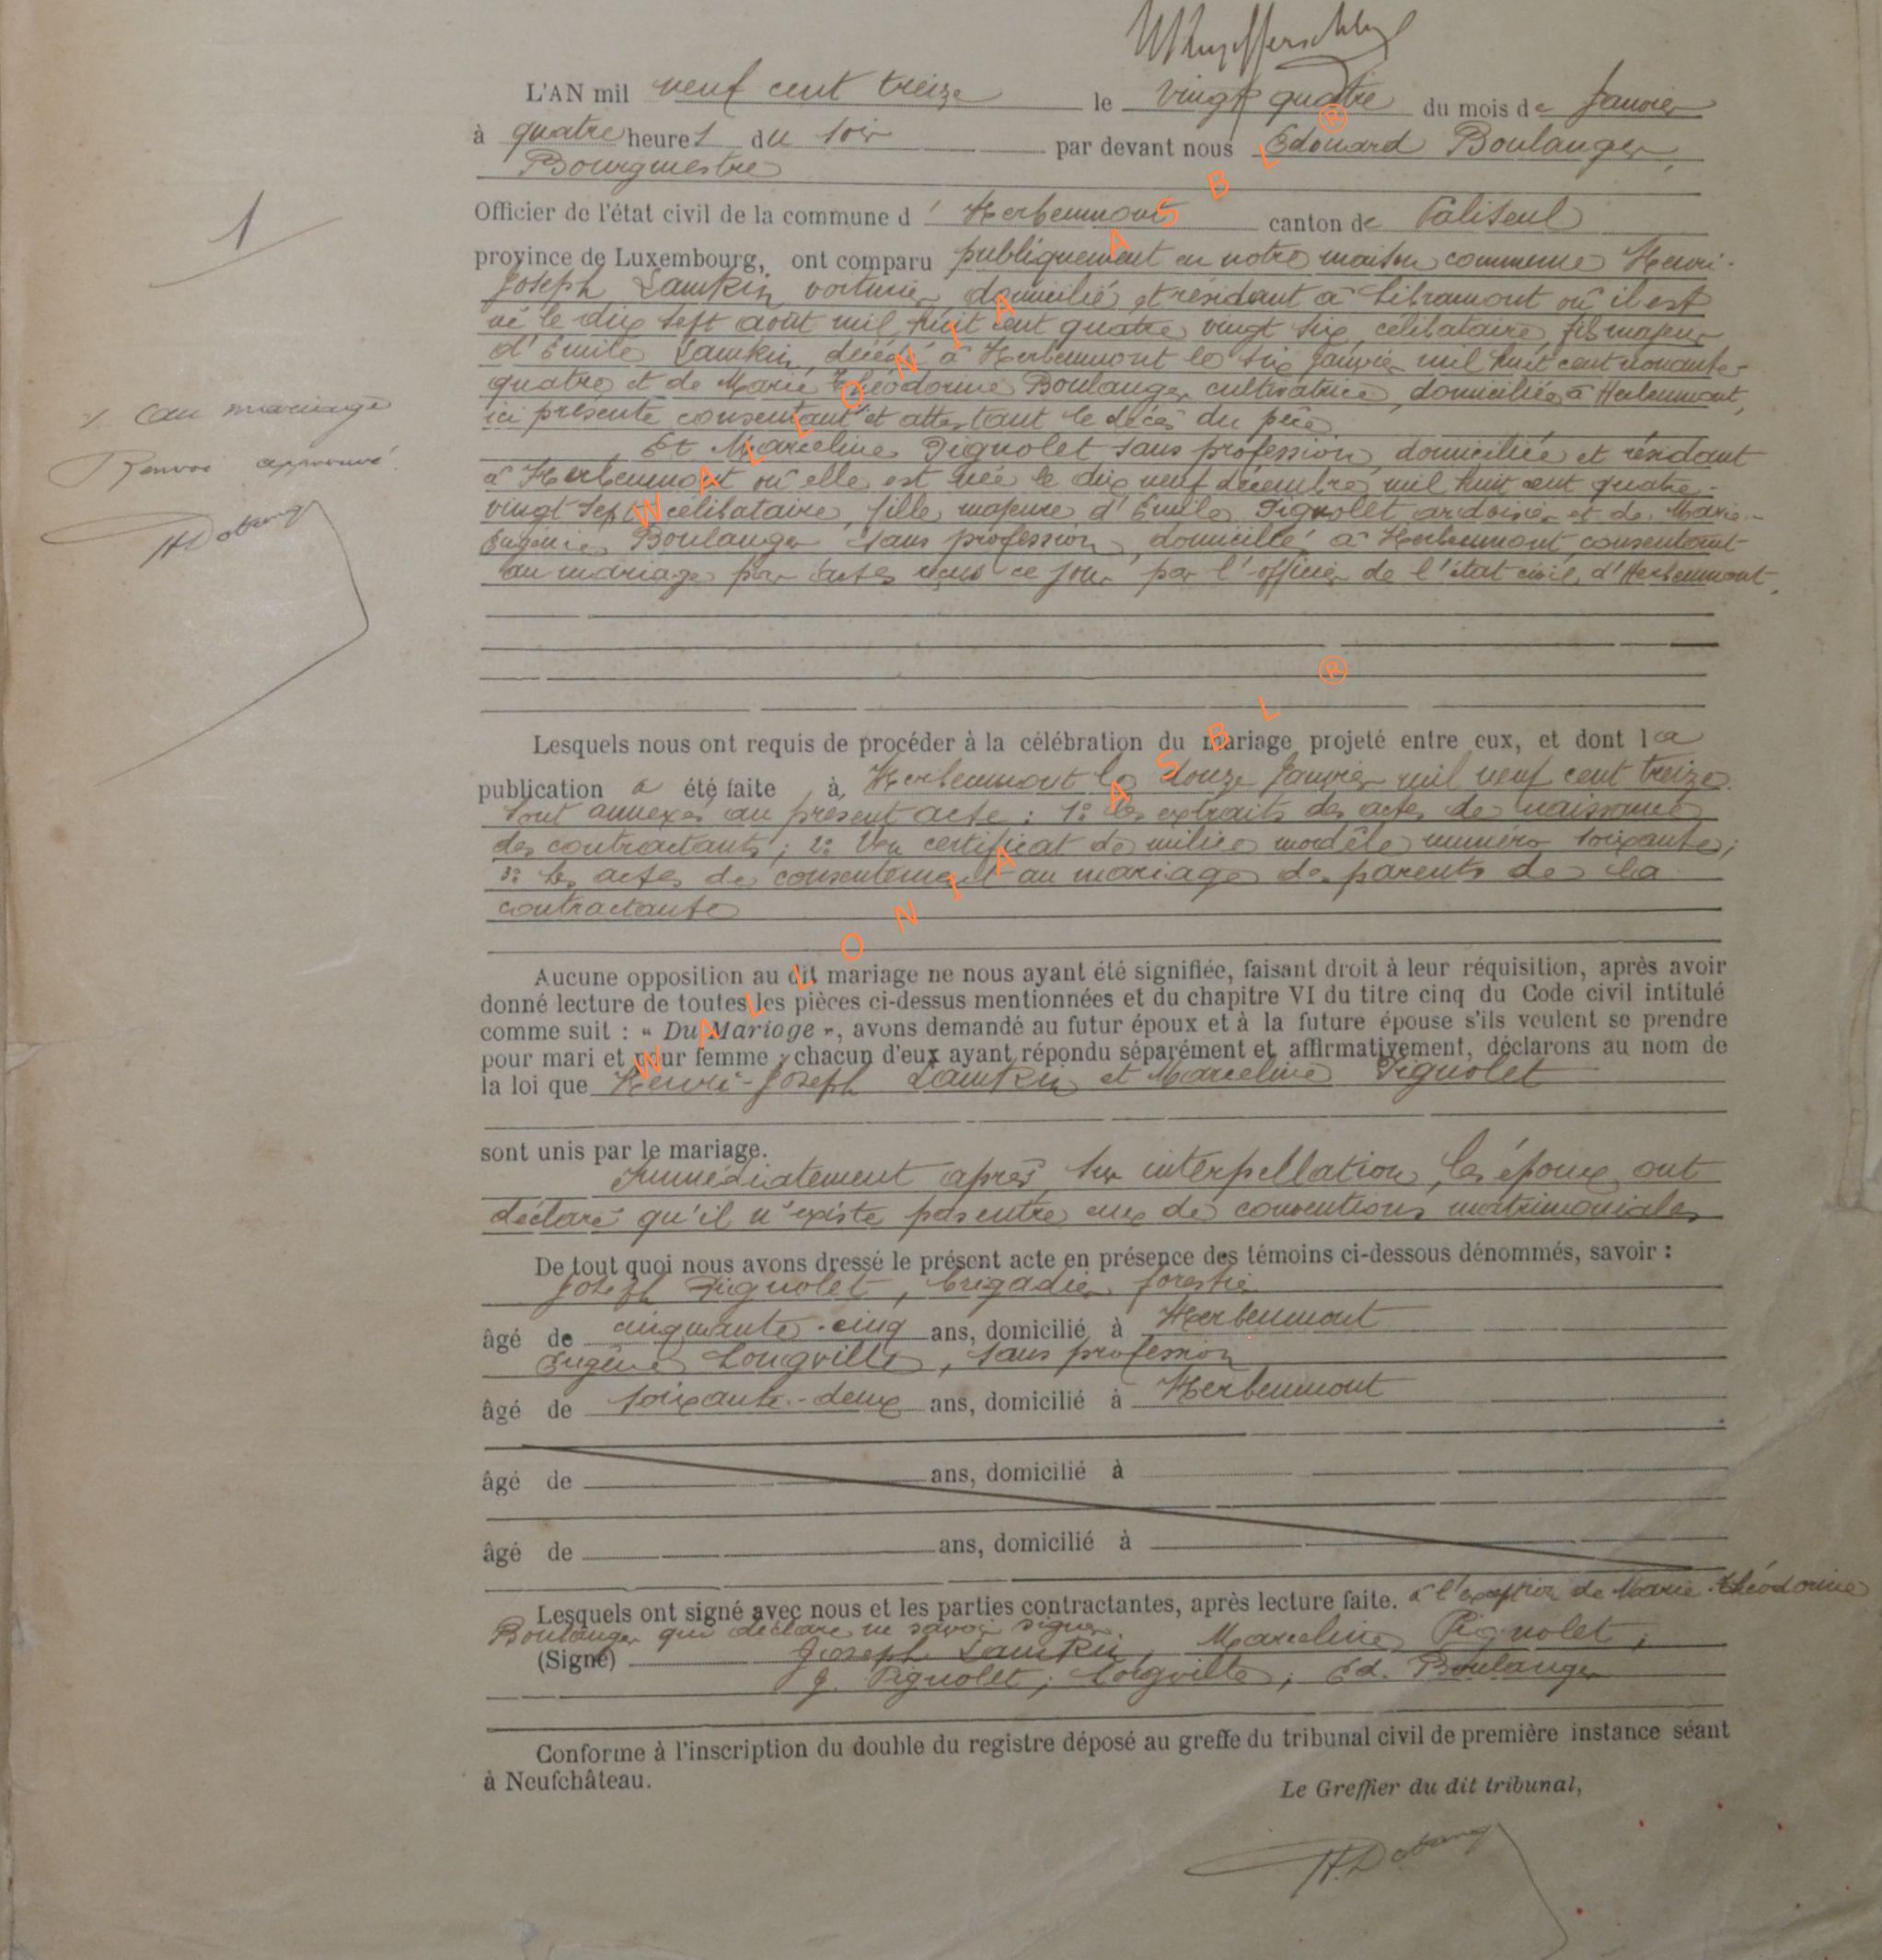 L'AN mil neuf cent treize le vingt quatre du mois de Janvier
à quatre heures du soir par devant nous Edouard Boulanger,
Bourgmestre
Officier de l'état civil de la commune d' Herbeumont canton de Paliseul
province de Luxembourg, ont comparu publiquement en notre maison commune Henri-
1
Joseph Lamkin, voiturier, domicilié et résidant à Libramont où il est
né le dix sept août mil huit cent quatre vingt six, célibataire, fils majeur
d'Emile Lamkin, décédé à Herbeumont le six Janvier mil huit cent nonante-
quatre et de Marie Théodorine Boulanger, cultivatrice, domiciliée à Herbeumont,
ici présente consentant et attestant le décès du père
au mariage
Renvoi approuvé.
Et Marceline Pignolet sans profession, domiciliée et résidant
à Herbeumont où elle est née le dix neuf décembre mil huit cent quatre-
vingt sept célibataire, fille majeure d'Emile Pignolet ardoisier et de Marie-
Eugénie Boulanger sans profession, domiciliés à Herbeumont, consentant
au mariage par actes reçus ce jour par l'officier de l'état civil d'Herbeumont.
WALLONIA ASBL ®
Lesquels nous ont requis de procéder à la célébration du mariage projeté entre eux, et dont la
publication a été faite à Herbeumont le douze Janvier mil neuf cent treize.
Sont annexés au présent acte : 1° les extraits des actes de naissance
des contractants ; 2° Un certificat de milice modèle numéro soixante ;
3° les actes de consentement au mariage des parents de la
contractante
WALLONIA ASBL ®
Aucune opposition au dit mariage ne nous ayant été signifiée, faisant droit à leur réquisition, après avoir
donné lecture de toutes les pièces ci-dessus mentionnées et du chapitre VI du titre cinq du Code civil intitulé
comme suit : « Du Mariage », avons demandé au futur époux et à la future épouse s'ils veulent se prendre
pour mari et pour femme ; chacun d'eux ayant répondu séparément et affirmativement, déclarons au nom de
la loi que Henri-Joseph Lamkin et Marceline Pignolet
sont unis par le mariage.
Immédiatement après, sur interpellation, les époux ont
déclaré qu'il n'existe pas entre eux de conventions matrimoniales
De tout quoi nous avons dressé le présent acte en présence des témoins ci-dessous dénommés, savoir :
Joseph Pignolet, brigadier forestier
âgé de cinquante-cinq ans, domicilié à Herbeumont
Eugène Longville, sans profession
âgé de soixante-deux ans, domicilié à Herbeumont
âgé de ans, domicilié à
âgé de ans, domicilié à
Lesquels ont signé avec nous et les parties contractantes, après lecture faite. à l'exception de Marie Théodorine
Boulanger qui déclare ne savoir signer.
(Signé) Joseph Lamkin, Marceline Pignolet,
J. Pignolet ; Longville ; Ed. Boulanger
Conforme à l'inscription du double du registre déposé au greffe du tribunal civil de première instance séant
à Neufchâteau.
Le Greffier du dit tribunal,